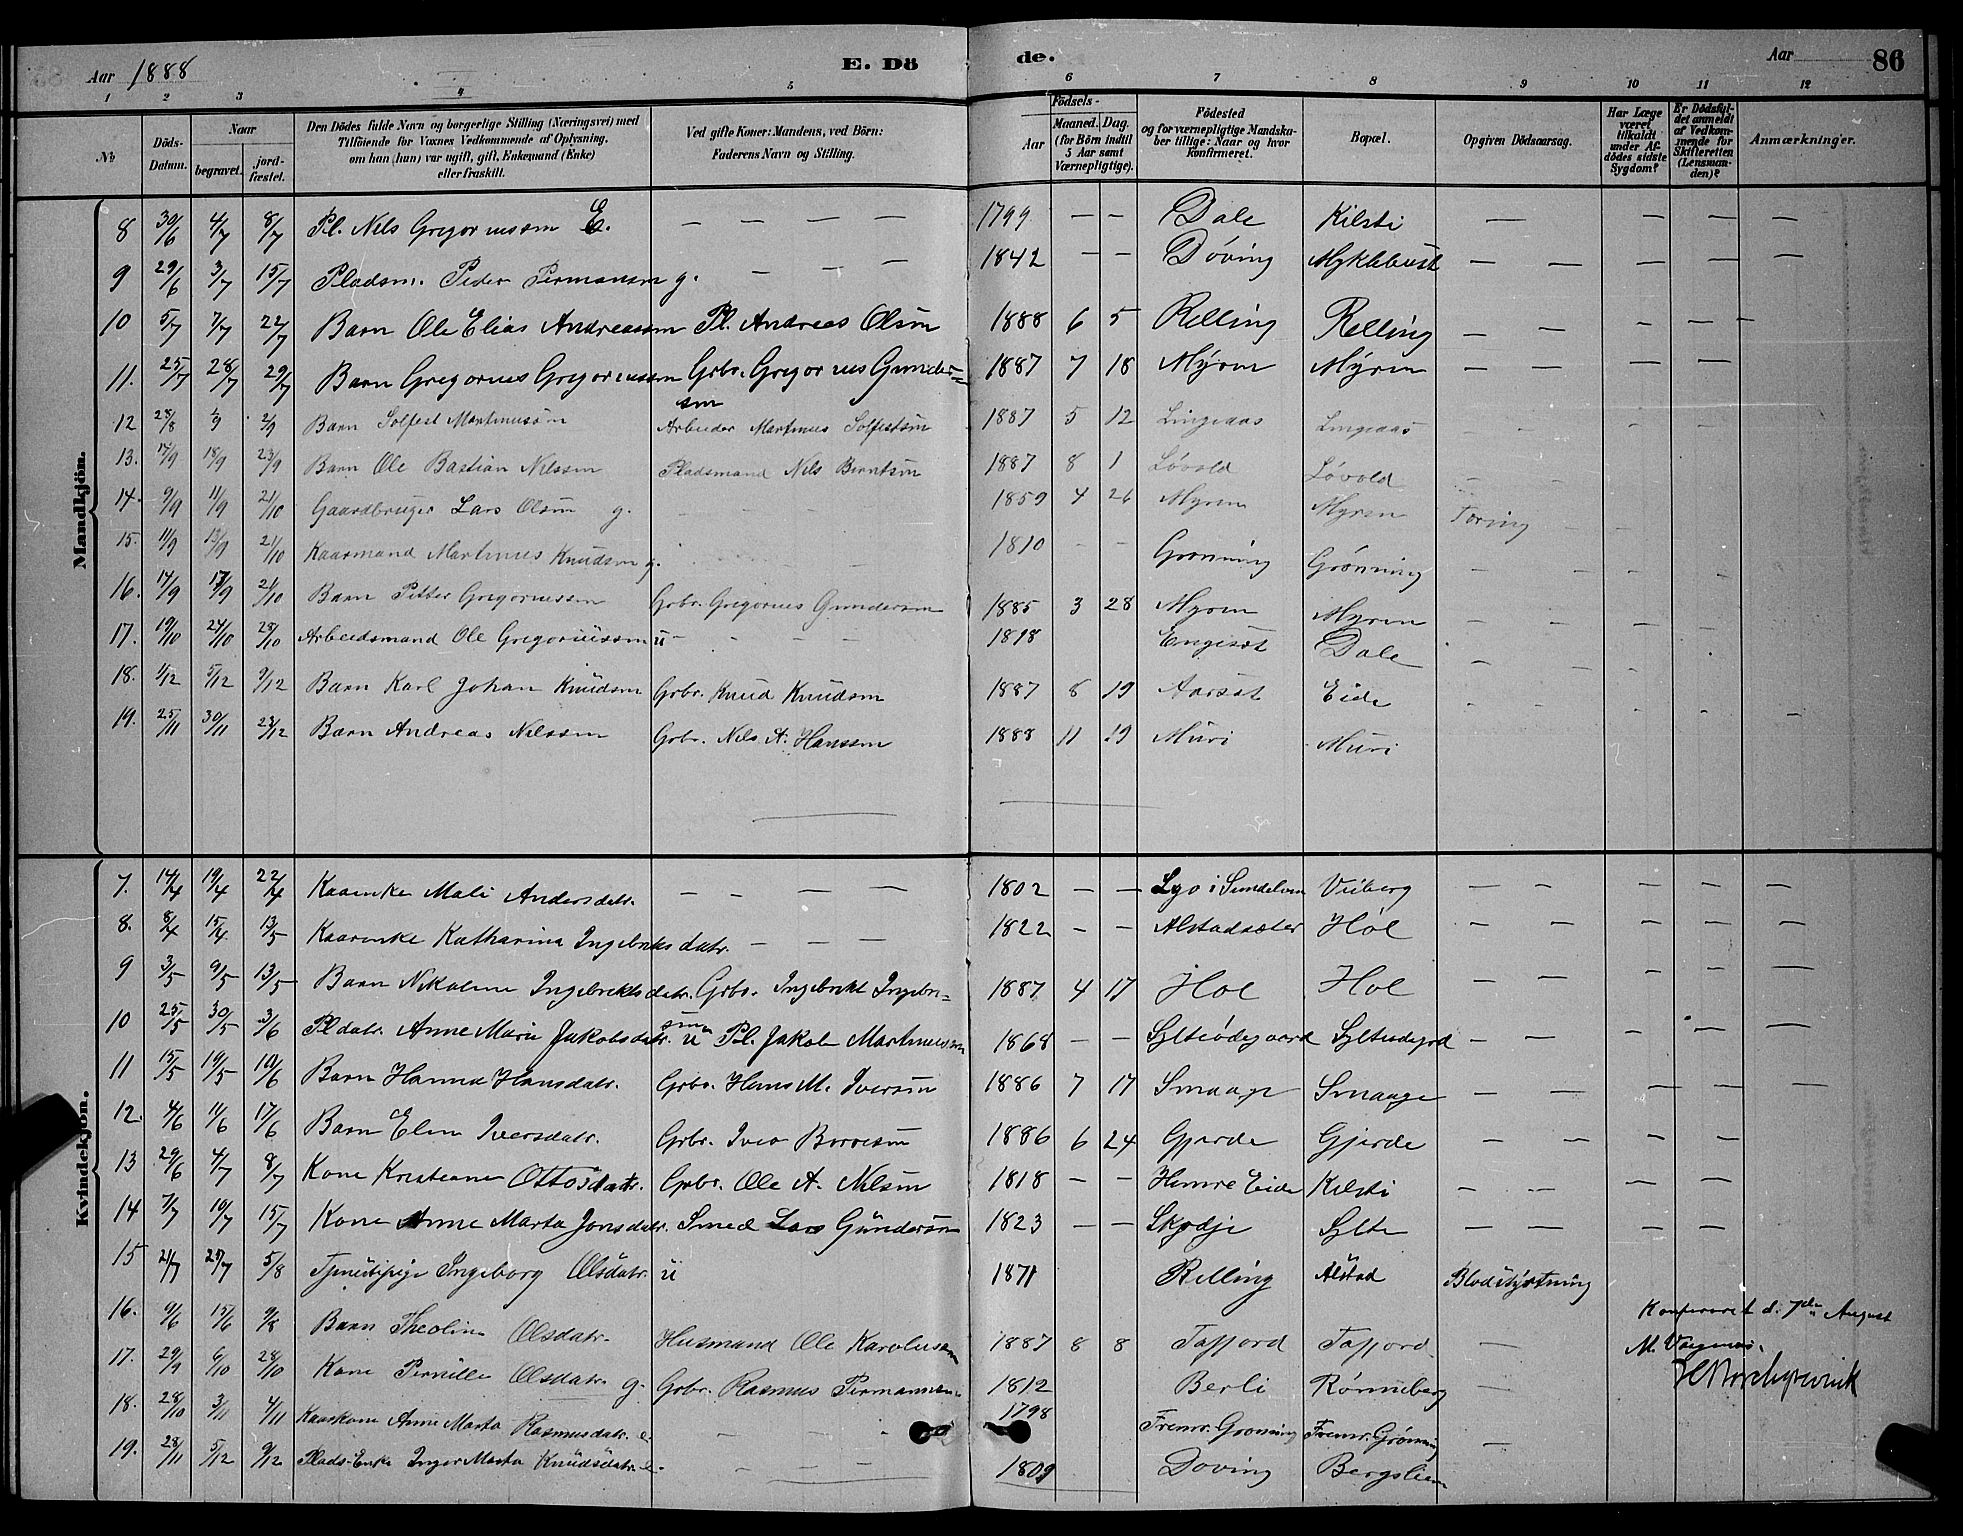 Aar 1888 E. Dö de. Aar 86
1 2 3 4 5 6 7 8 9 10 11 12
No
Döds-Datum.
Naar
begravet.
jord-fæstet.
Den Dödes fulde Navn og borgerlige Stilling (Næringsvei) med
Tilföiende for Voxnes Vedkommende af Oplysning,
om han (hun) var ugift, gift, Enkemand (Enke)
eller fraskilt.
Ved gifte Koner: Mandens, ved Börn:
Faderens Navn og Stilling.
Födsels-
Aar
Maaned. Dag.
(for Börn indtil
5 Aar samt
Værnepligtige).
Födested
og for værnepligtige Mandska-
ber tillige: Naar og hvor
Konfirmeret.
Bopæl.
Opgiven Dödsaarsag.
Har Læge
været
tilkaldt
under Af-
dödes sidste
Sygdom?
Er Dödsfal-
det anmeldt
af Vedkom-
mende for
Skifteretten
(Lensman-
den)?
Anmærkninger.
Mandkjön.
8 30/6 4/7 8/7 Pl. Nels Gregoriussøn E. — — — — 1799 — — Dale Kilsti — — — —
9 29/6 3/7 15/7 Pladsm. Peder Permansøn g. — — — 1842 — — Døving Myklebust — — — — —
10 5/7 7/7 22/7 Barn Ole Elias Andreassøn Pl. Andreas Olsøn 1888 6 5 Relling Relling — — — — —
11. 25/7 28/7 29/7 Barn Gregorius Gregoriussøn Grbr. Gregorius Gunder=
søn 1887 7 18 Myren Myren — — — —
12 28/8 2/9 Barn Solfest Martinusøn Arbeider Martinus Solfestsøn 1887 5 12 Lingaas Lingaas - - - -
13. 14/9 18/9 23/9 Barn Ole Bastian Nilssøn Pladsmand Nels Berntsøn 1887 8 1 Løvold Løvold - -
14. 9/9 11/9 21/10 Gaardbruger Lars Olsøn g. - - - 1859 4 26 Myren Myren Tæring - -
15. 11/9 13/9 21/10 Kaarmand Martinus Knudsøn g. 1810 - - Grønning Grønning - - - -
16. 14/9 17/9 21/10 Barn Petter Gregoriussøn Grbr. Gregorius Gundersøn 1885 3 28 Myren Myren - - - -
17. 19/10 24/10 28/10 Arbeidsmand Ole Gregoriussøn ü - - - - 1818 Engeset Dale - - - -
18. 1/12 5/12 9/12 Barn Karl Johan Knudsøn Grbr. Knud Knudsøn 1887 8 19 Aarset Eide - - - -
19. 25/11 30/11 23/12 Barn Andreas Nelssøn Grbr. Nels A. Hanssøn 1888 11 19 Muri Muri
Kvindekjön.
7. 14/4 19/4 22/4 Kaarenke Mali Andersdatr. — — — 1802 — — Viiberg — — — — —
8. 8/4 15/4 13/5 Kaarenke Katharina Ingebrikts datr. — — — 1822 — — Alstadsæter Hol — — — — —
9 3/5 9/5 13/5 Barn Nikoline Ingebriktsdatr. Grbr. Ingebrikt Ingebri=
søn 1887 4 17 Hol Hol — — — — —
10 25/5 30/5 3/6 Pl datr. Anne Marie Jakobsdatr. ü Pl. Jakob Martinussøn 1868 — — Sylteødegaard Sylteødegrd — — — — —
11 15/5 19/5 10/6 Barn Hanna Hansdatr. Grbr. Hans M. Iversøn 1886 7 17 Smaage Smaage — — — — —
12. 4/6 11/6 17/6 Barn Elen Iversdatr. Grbr. Iver 1886 6 24 Gjerde Gjerde — — — — —
13 29/6 4/7 8/7 Kone Kristiane Ottosdatr. Grbr. Ole A. Nilsøn 1818 — — Eide Kilsti — — — — —
14 7/7 10/7 15/7 Kone Anne Marta Jonsdatr. Smed Lars Gundersøn 1823 — — Skodje Sylte — — — — —
15 21/7 27/7 5/8 Tjenestepige Ingeborg Olsdatr. ü 1871 Relling Alstad Blodstyrtning
16. 9/6 15/6 9/8 Barn Theoline Olsdatr. Husmand Ole Karolussøn 1887 8 8 Tafjord Tafjord —
17. 29/9 6/10 28/10 Kone Pernille Olsdatr g. Grbr. Rasmus Permansøn 1812 Berli Rønneberg —
18. 28/10 3/11 4/11 Kaarkone Anne Marta Rasmusdatr. e. - - - 1798 Fremr. Grønning Fremr. Grønning
19. 28/11 5/12 9/12 Plads-Enke Inger Marta Knudsdatr. e. — — — 1809 Døving Bergsliem
Konfereret d. 7de August
M.